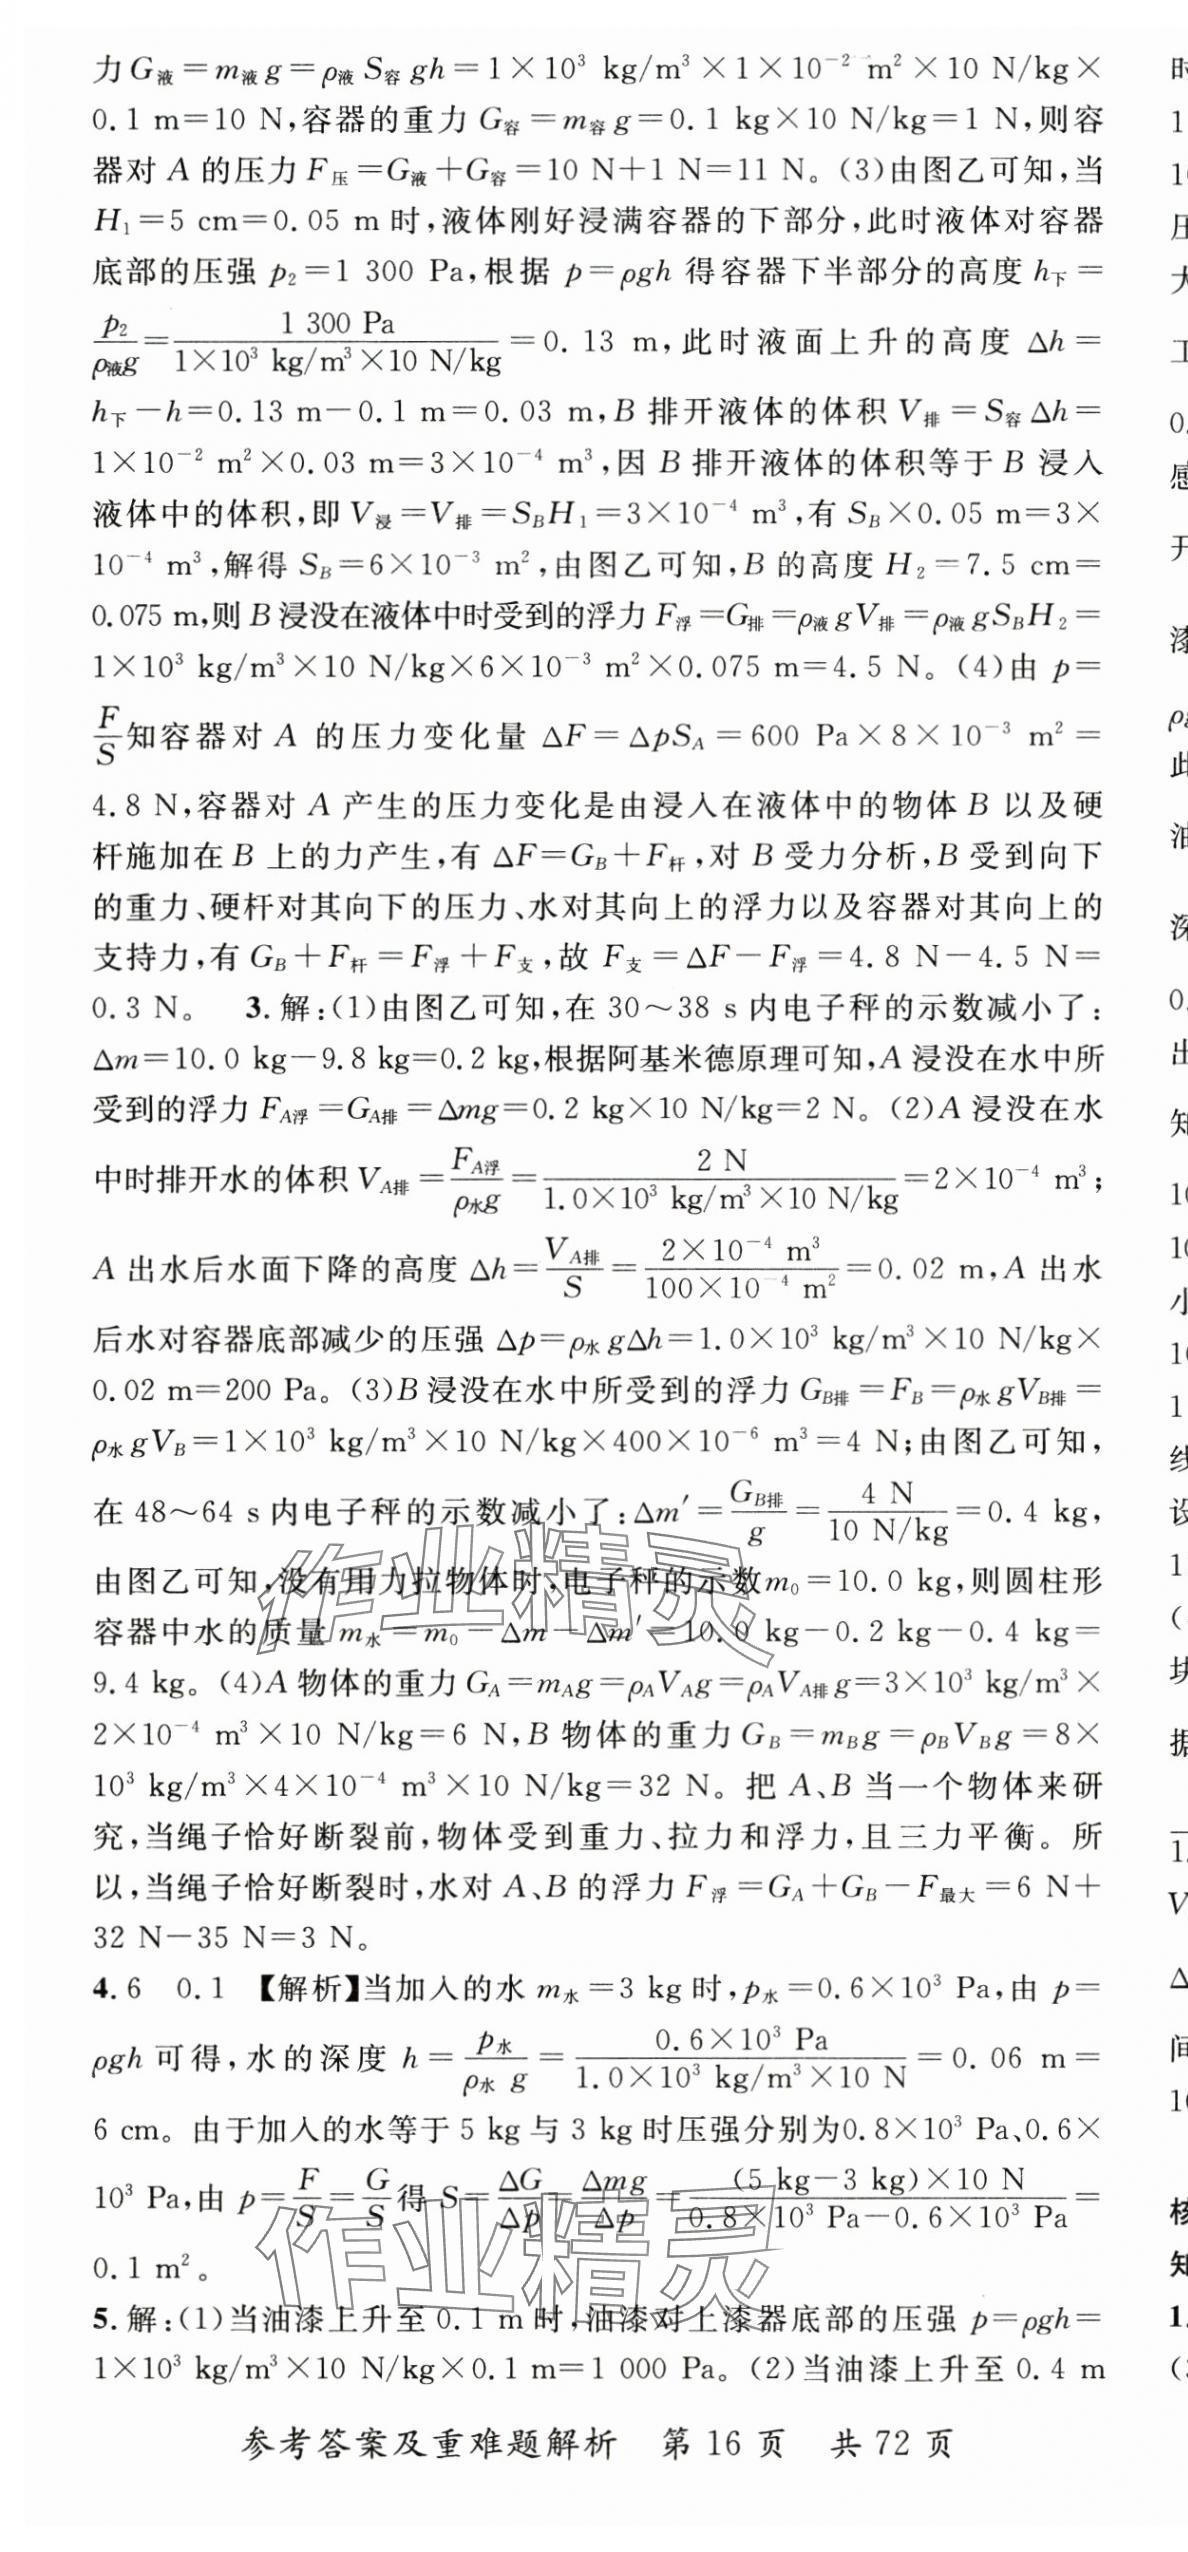 力G液=m液g=ρ液S容gh=1×10³ kg/m³×1×10⁻² m²×10 N/kg×
0.1 m=10 N,容器的重力G容=m容g=0.1 kg×10 N/kg=1 N,则容
器对A的压力F压=G液+G容=10 N+1 N=11 N。(3)由图乙可知,当
H₁=5 cm=0.05 m时,液体刚好浸满容器的下部分,此时液体对容器
底部的压强p₂=1 300 Pa,根据p=ρgh得容器下半部分的高度h下=
p₂/ρ液g=1 300 Pa/1×10³ kg/m³×10 N/kg=0.13 m,此时液面上升的高度Δh=
h下-h=0.13 m-0.1 m=0.03 m,B排开液体的体积V排=S容Δh=
1×10⁻² m²×0.03 m=3×10⁻⁴ m³,因B排开液体的体积等于B浸入
液体中的体积,即V浸=V排=S_BH₁=3×10⁻⁴ m³,有S_B×0.05 m=3×
10⁻⁴ m³,解得S_B=6×10⁻³ m²,由图乙可知,B的高度H₂=7.5 cm=
0.075 m,则B浸没在液体中时受到的浮力F浮=G排=ρ液gV排=ρ液gS_BH₂=
1×10³ kg/m³×10 N/kg×6×10⁻³ m²×0.075 m=4.5 N。(4)由p=
F/S知容器对A的压力变化量ΔF=ΔpS_A=600 Pa×8×10⁻³ m²=
4.8 N,容器对A产生的压力变化是由浸入在液体中的物体B以及硬
杆施加在B上的力产生,有ΔF=G_B+F杆,对B受力分析,B受到向下
的重力、硬杆对其向下的压力、水对其向上的浮力以及容器对其向上的
支持力,有G_B+F杆=F浮+F支,故F支=ΔF-F浮=4.8 N-4.5 N=
0.3 N。 3.解:(1)由图乙可知,在30～38 s内电子秤的示数减小了:
Δm=10.0 kg-9.8 kg=0.2 kg,根据阿基米德原理可知,A浸没在水中所
受到的浮力F_A浮=G_A排=Δmg=0.2 kg×10 N/kg=2 N。(2)A浸没在水
中时排开水的体积V_A排=F_A浮/ρ水g=2 N/1.0×10³ kg/m³×10 N/kg=2×10⁻⁴ m³;
A出水后水面下降的高度Δh=V_A排/S=2×10⁻⁴ m³/100×10⁻⁴ m²=0.02 m,A出水
后水对容器底部减少的压强Δp=ρ水gΔh=1.0×10³ kg/m³×10 N/kg×
0.02 m=200 Pa。(3)B浸没在水中所受到的浮力G_B排=F_B=ρ水gV_B排=
ρ水gV_B=1×10³ kg/m³×10 N/kg×400×10⁻⁶ m³=4 N;由图乙可知,
在48～64 s内电子秤的示数减小了:Δm′=G_B排/g=4 N/10 N/kg=0.4 kg,
由图乙可知,没有用力拉物体时,电子秤的示数m₀=10.0 kg,则圆柱形
容器中水的质量m水=m₀-Δm-Δm′=10.0 kg-0.2 kg-0.4 kg=
9.4 kg。(4)A物体的重力G_A=m_Ag=ρ_AV_Ag=ρ_AV_A排g=3×10³ kg/m³×
2×10⁻⁴ m³×10 N/kg=6 N,B物体的重力G_B=m_Bg=ρ_BV_Bg=8×
10³ kg/m³×4×10⁻⁴ m³×10 N/kg=32 N。把A、B当一个物体来研
究,当绳子恰好断裂前,物体受到重力、拉力和浮力,且三力平衡。所
以,当绳子恰好断裂时,水对A、B的浮力F浮=G_A+G_B-F最大=6 N+
32 N-35 N=3 N。
4.6 0.1 【解析】当加入的水m水=3 kg时,p水=0.6×10³ Pa,由p=
ρgh可得,水的深度h=p水/ρ水g=0.6×10³ Pa/1.0×10³ kg/m³×10 N=0.06 m=
6 cm。由于加入的水等于5 kg与3 kg时压强分别为0.8×10³ Pa、0.6×
10³ Pa,由p=F/S=G/S得S=ΔG/Δp=Δmg/Δp=(5 kg-3 kg)×10 N/0.8×10³ Pa-0.6×10³ Pa=
0.1 m²。
5.解:(1)当油漆上升至0.1 m时,油漆对上漆器底部的压强p=ρgh=
1×10³ kg/m³×10 N/kg×0.1 m=1 000 Pa。(2)当油漆上升至0.4 m
参考答案及重难题解析 第16页 共72页
作业精灵
作业精灵